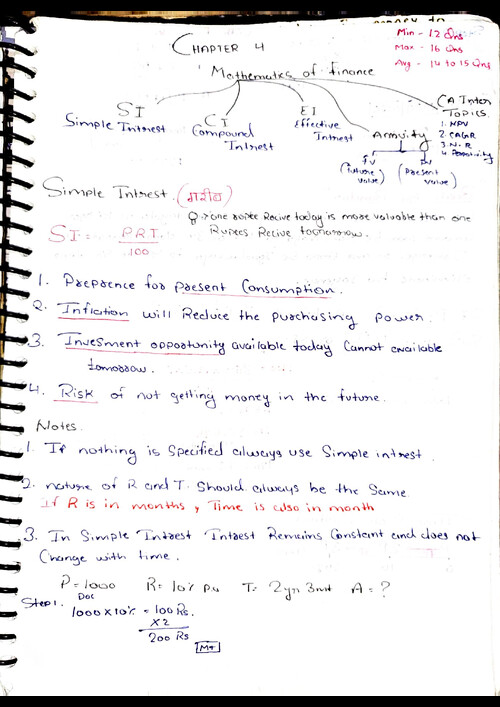 Min - 12 Qns
Max - 16 Qns
Avg - 14 to 15 Qns
CHAPTER 4
Mathematics of finance
SI
Simple Intrest
CI
Compound
Intrest
EI
Effective
Intrest
Annuity
FV
(Future
Value)
PV
(Present
Value)
CA Inter
TOPICS.
1. NPV
2. CAGR
3. N.R
4. Perpetuity
Simple Intrest. (गरीब)
Q → one rupee Recive today is more valuable than one
Rupees Recive toomorrow.
SI = PRT
100
1. Preprence for present Consumption.
2. Inflation will Reduce the purchasing power.
3. Invesment opportunity available today Cannot available
tomorrow.
4. Risk of not getting money in the future.
Notes.
1. If nothing is Specified always use Simple intrest.
2. nature of R and T. Should always be the Same
If R is in months, Time is also in month
3. In Simple Intrest Intrest Remains Constant and does not
Change with time.
P = 1000 R = 10% pa T = 2yr 3mt A = ?
Step 1.
1000 x 10% = 100 Rs.
X 2
200 Rs
M+